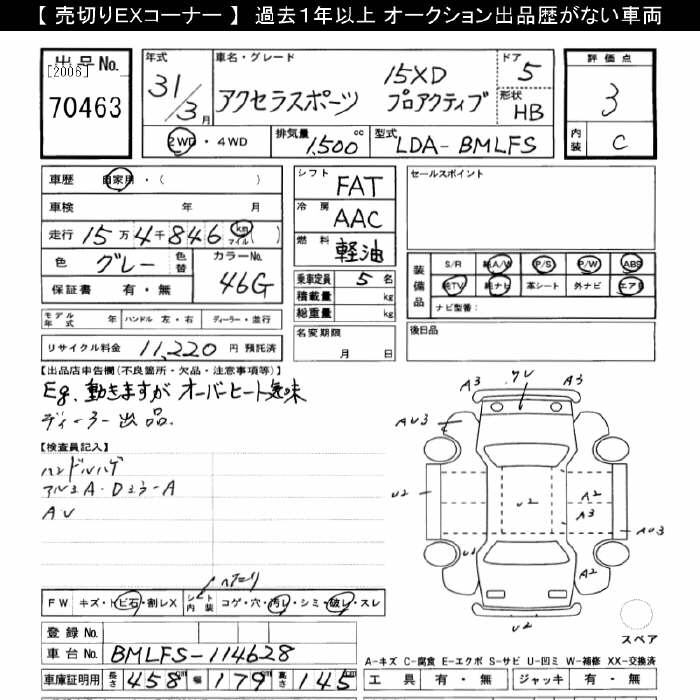 【 売切りEXコーナー 】 過去1年以上 オークション出品歴がない車両
出品No.
[2006]
70463
年式 31/3月
車名・グレード アクセラスポーツ 15XD プロアクティブ
ドア 5
形状 HB
2WD ・ 4WD
排気量 1,500 cc
型式 LDA-BMLFS
評価点 3
内装 C
車歴 自家用 ・( )
車検 年 月
走行 15万4千846 km マイル ( )
色 グレー 色替
カラーNo. 46G
保証書 有 ・ 無
モデル年式 年 ハンドル 左・右 ディーラー・並行
リサイクル料金 11,220 円 預託済
シフト FAT
冷房 AAC
燃料 軽油
乗車定員 5 名
積載量 kg
総重量 kg
名変期限 月 日
セールスポイント
装備品 S/R 純A/W P/S P/W ABS
純TV 純ナビ 革シート 外ナビ エアB
ナビ型番：
後日品
【出品店申告欄(不良箇所・欠品・注意事項等)】
Eg. 動きますが オーバーヒート気味
ディーラー出品.
【検査員記入】
ハンドルハゲ
アルミA・Dミラー A
AU
A3 ワレ A3
AU3
U2 U2 A2
A3 AU3
U1 A2
U2
スペア
FW キズ・トビ石・割レX
シート内装 コゲ・穴・汚レ・シミ・破レ・スレ
登録 No.
車台 No. BMLFS-114628
車庫証明用 長さ 458 幅 179 高さ 145
A-キズ C-腐食 E-エクボ S-サビ U-凹ミ W-補修 XX-交換済
工具 有 ・ 無 ジャッキ 有 ・ 無